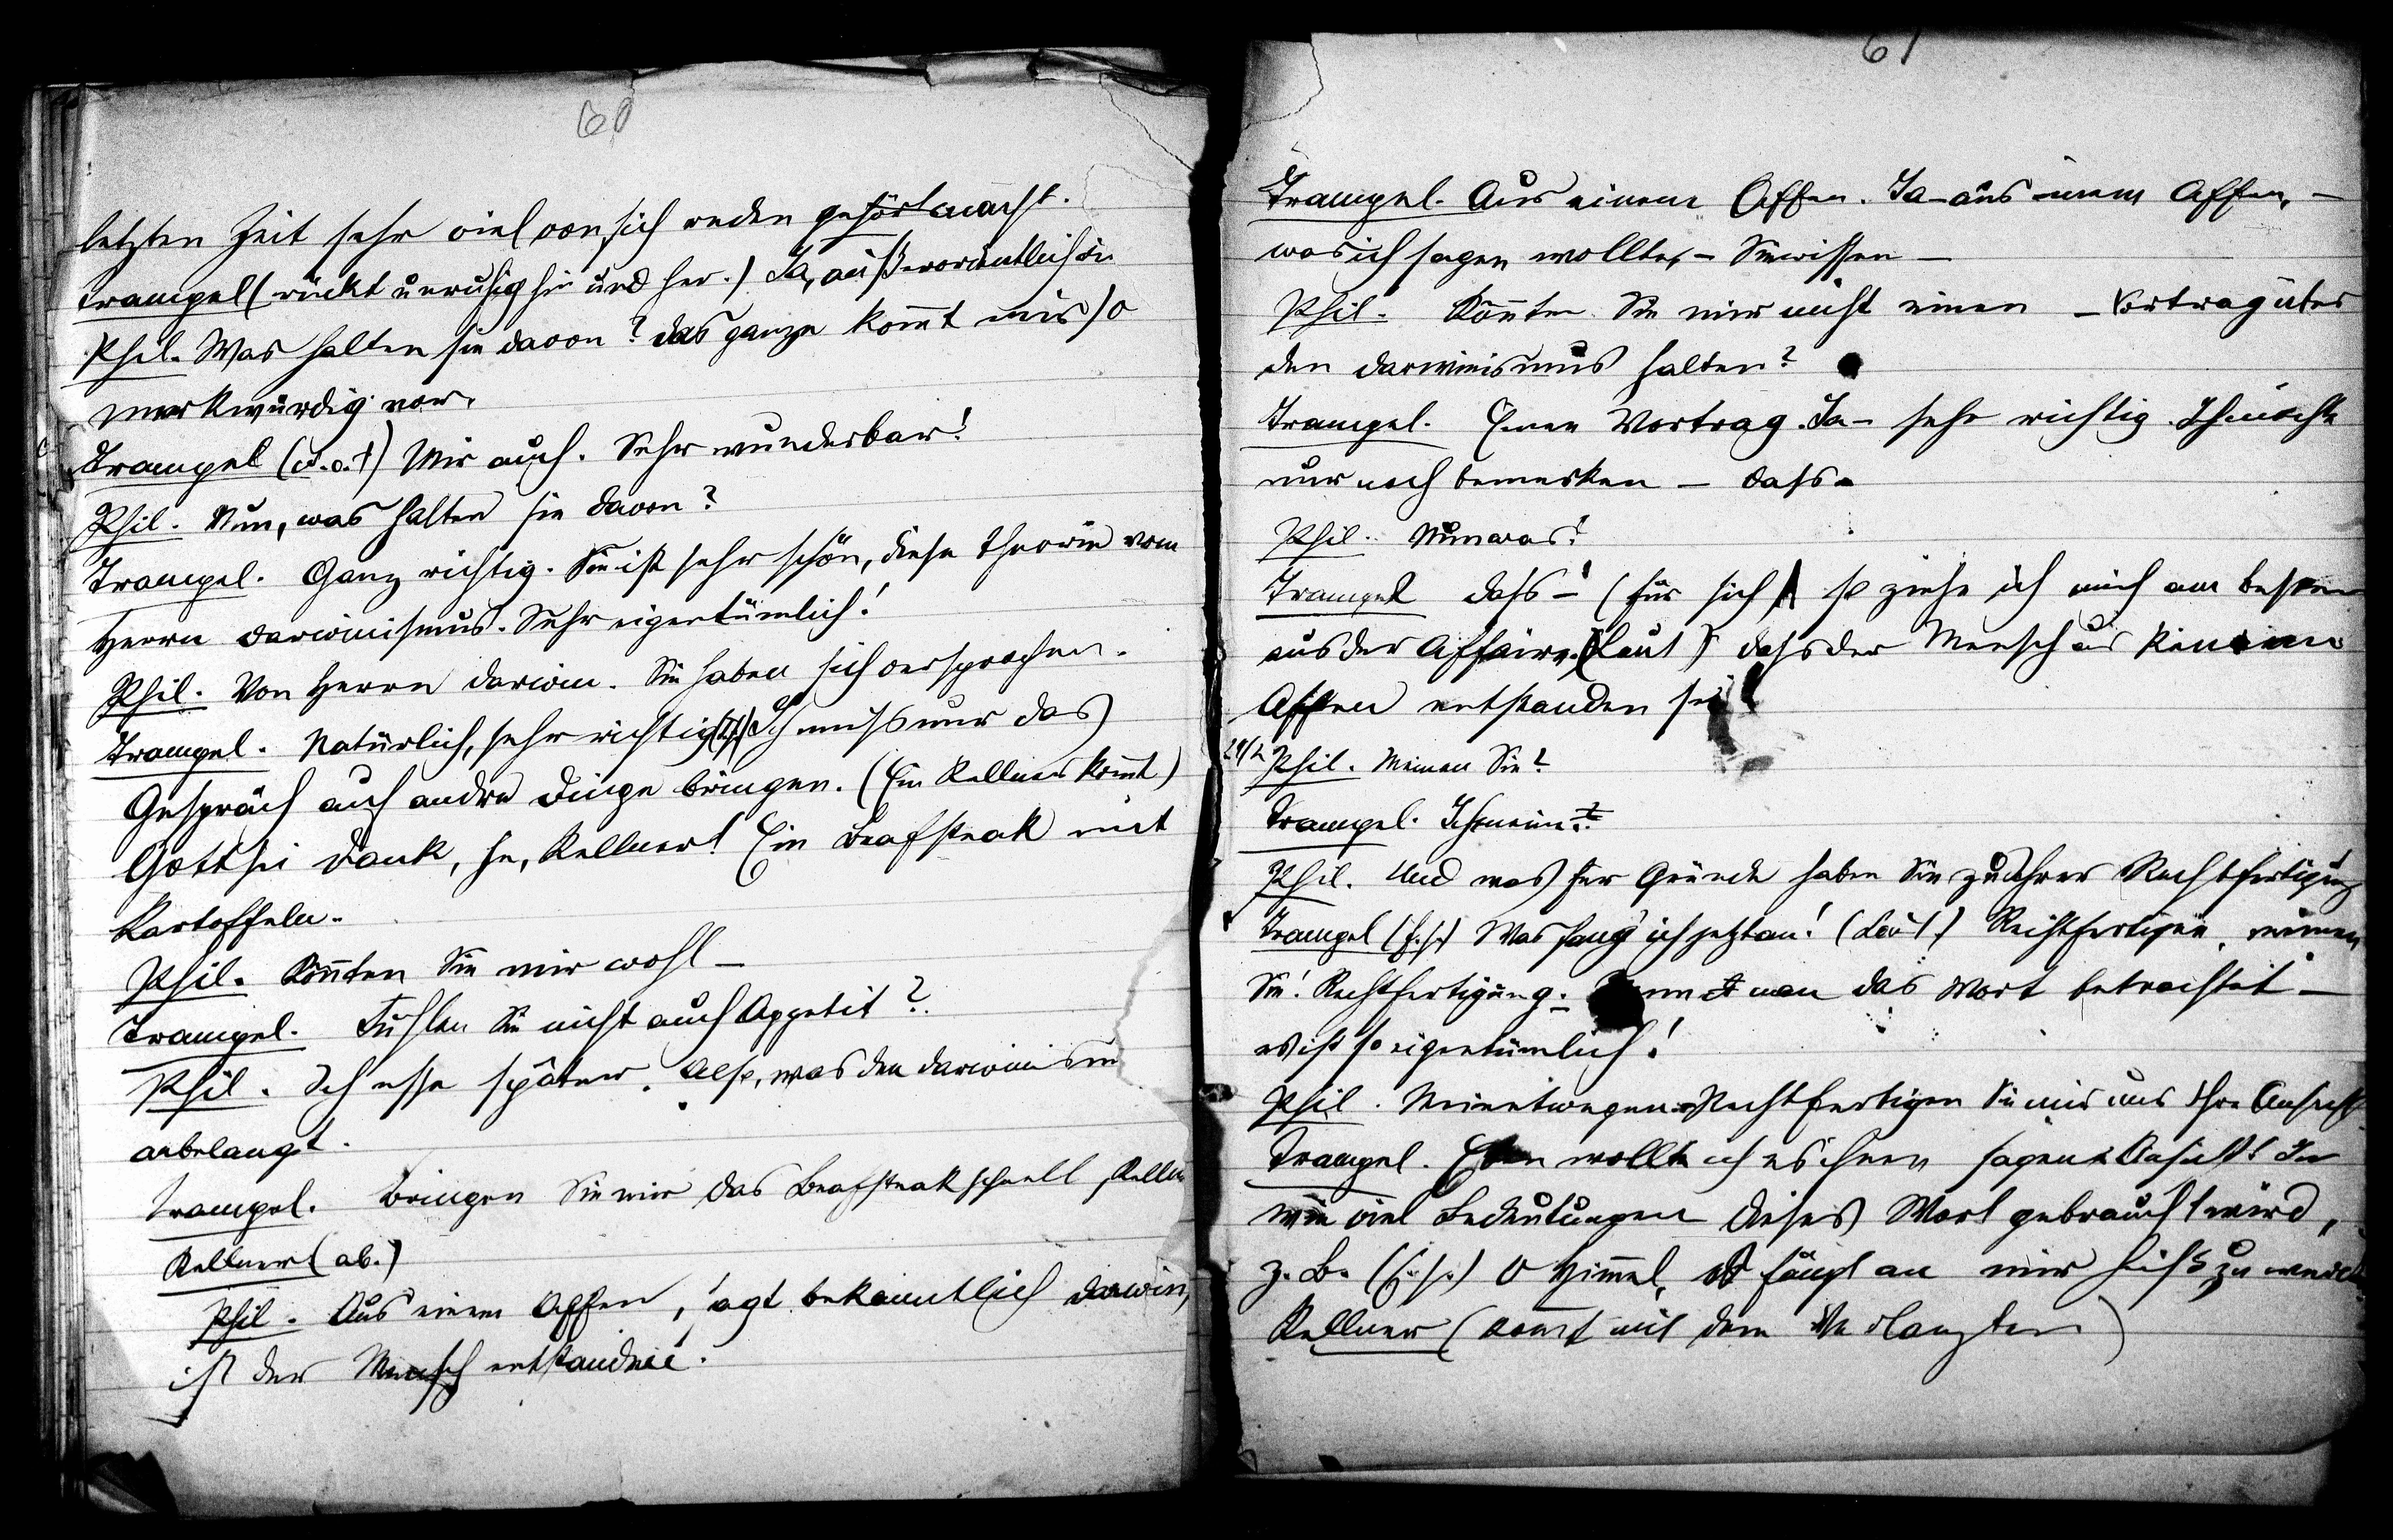 60
letzten Zeit sehr viel von sich reden gehört macht.
Trampel (rückt unruhig hin und her.) Ja, außerordentlich
Phil. Was halten sie davon? das ganze kommt mir so
merkwürdig vor.
Trampel (w. o. †) Mir auch. Sehr wunderbar!
Phil. Nun, was halten sie davon?
Trampel. Ganz richtig. Sie ist sehr schön, diese Theorie vom
Herrn Darwinismus. Sehr eigentümlich!
Phil. Von Herrn Darwin. Sie haben sich versprochen.
Trampel. Natürlich, sehr richtig (f.s.) Ich muß nur das
Gespräch auf andre Dinge bringen. (Ein Kellner kommt)
Gott sei Dank, he, Kellner! Ein Beafsteak mit
Kartoffeln.
Phil. Könnten Sie mir wohl –
Trampel. Fühlen Sie nicht auch Appetit?
Phil. Ich esse später. Also, was den Darwinism
anbelangt.
Trampel. Bringen Sie mir das Beafsteak schnell, Kelln
Kellner (ab.)
Phil. Aus einem Affen, sagt bekanntlich Darwin,
ist der Mensch entstanden.
61
Trampel. Aus einem Affen. Ja – aus einem Affen, –
was ich sagen wollte, – Sie wissen –
Phil. Könnten Sie mir nicht einen – Vortrag über
den Darwinismus halten?
Trampel. Einen Vortrag. Ja – sehr richtig. Ich möchte
nur noch bemerken – dass –
Phil. Nun was?
Trampel dass –! (für sich) so ziehe ich mich am besten
aus der Affaire. (Laut) dass der Mensch aus keinem
Affen entstanden sei!
Phil. Meinen Sie?
Trampel. Ich meine.
Phil. Und was für Gründe haben Sie zu Ihrer Rechtfertigung
Trampel (f.s.) Was fang' ich jetzt an! (Laut.) Rechtfertigen, meinen
Sie! Rechtfertigung. Wenn man das Wort betrachtet –
es ist so eigentümlich!
Phil. Meinetwegen. Rechtfertigen Sie mir nur Ihre Ansicht
Trampel. Eben wollte ich es ihnen sagen. Ansicht! In
wie viel Bedeutungen dieses Wort gebraucht wird,
z. B. (f.s.) O Himmel, es fängt an mir heiß zu werden
Kellner (kommt mit dem Verlangten)